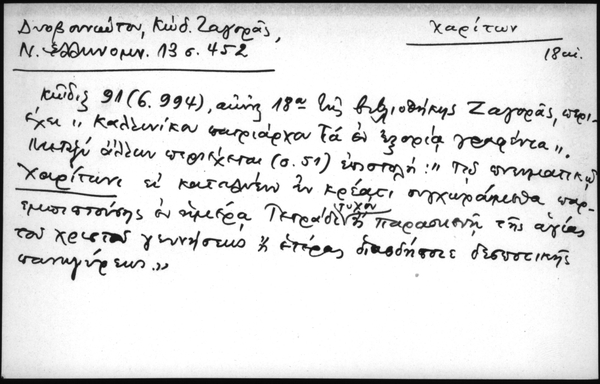 Δυοβουνιώτου, Κώδ. Ζαγορᾶς,
Ν. Ἑλληνομν. 13 σ. 452
Χαρίτων
18 αἰ.
Κῶδιξ 91 (σ. 994), αἰῶν. 18ου τῆς βιβλιοθήκης Ζαγορᾶς, περι-
έχει "Καλλινίκου πατριάρχου τά ἐν ἐξορίᾳ γραφέντα".
Μεταξύ ἄλλων περιέχεται (σ. 51) ἐπιστολή: "Τῷ πνευματικῷ
Χαρίτωνι εἰ καταλύειν ἐν κρέατι συγχωρούμεθα παρ-
εμπιπτούσης ἐν ἡμέρᾳ Τετράδι τυχόν ἤ παρασκευῇ τῆς ἁγίας
τοῦ χριστοῦ γεννήσεως ἤ ἑτέρας οἱασδήποτε δεσποτικῆς
πανηγύρεως."